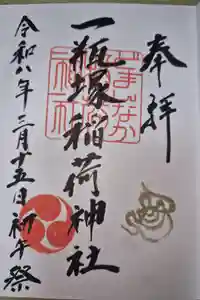 奉拝
一瓶塚稲荷神社
令和八年三月十五日初午祭